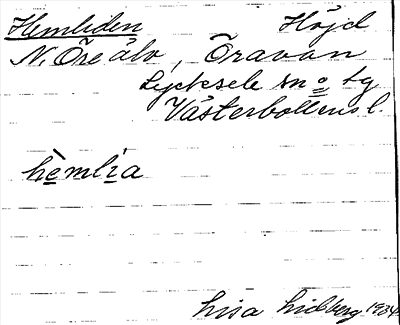 Hemliden Höjd
N. Öre älv, Öravan
Lycksele sn o lg
Västerbottens l.
hèmlia
Lisa Lidberg 1934